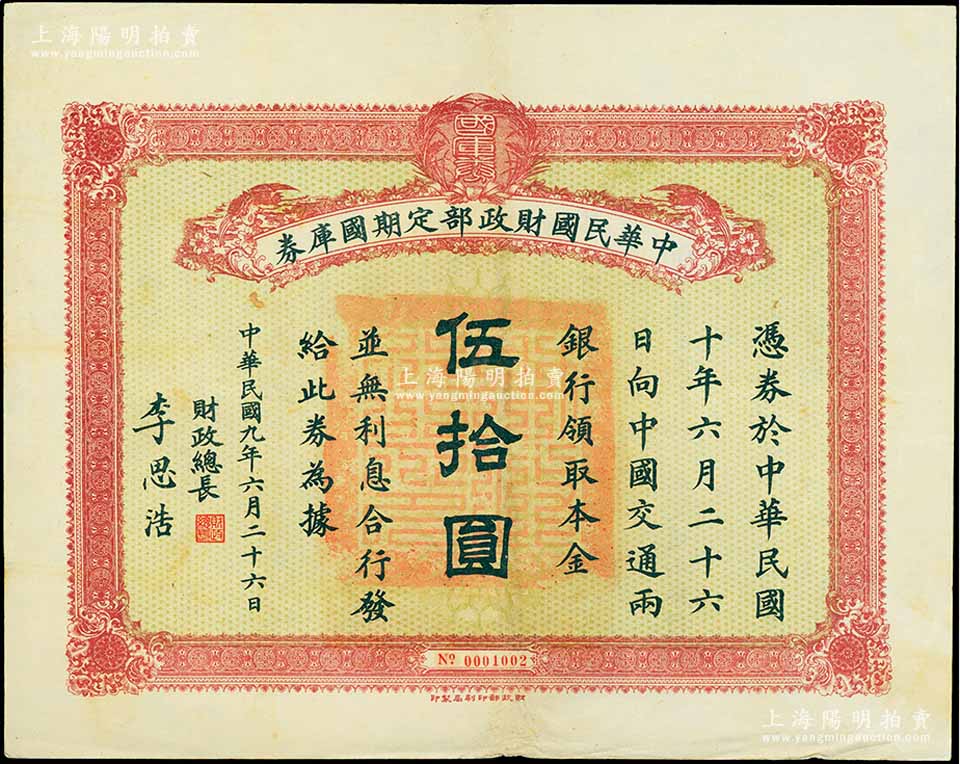 上海陽明拍賣
www.yangmingauction.com
國庫券
中華民國財政部定期國庫券
憑券於中華民國
十年六月二十六
日向中國交通兩
銀行領取本金
伍拾圓
並無利息合行發
給此券為據
中華民國九年六月二十六日
財政總長
李思浩
No 0001002
財政部印刷局製印
上海陽明拍賣
www.yangmingauction.com
上海陽明拍賣
www.yangmingauction.com